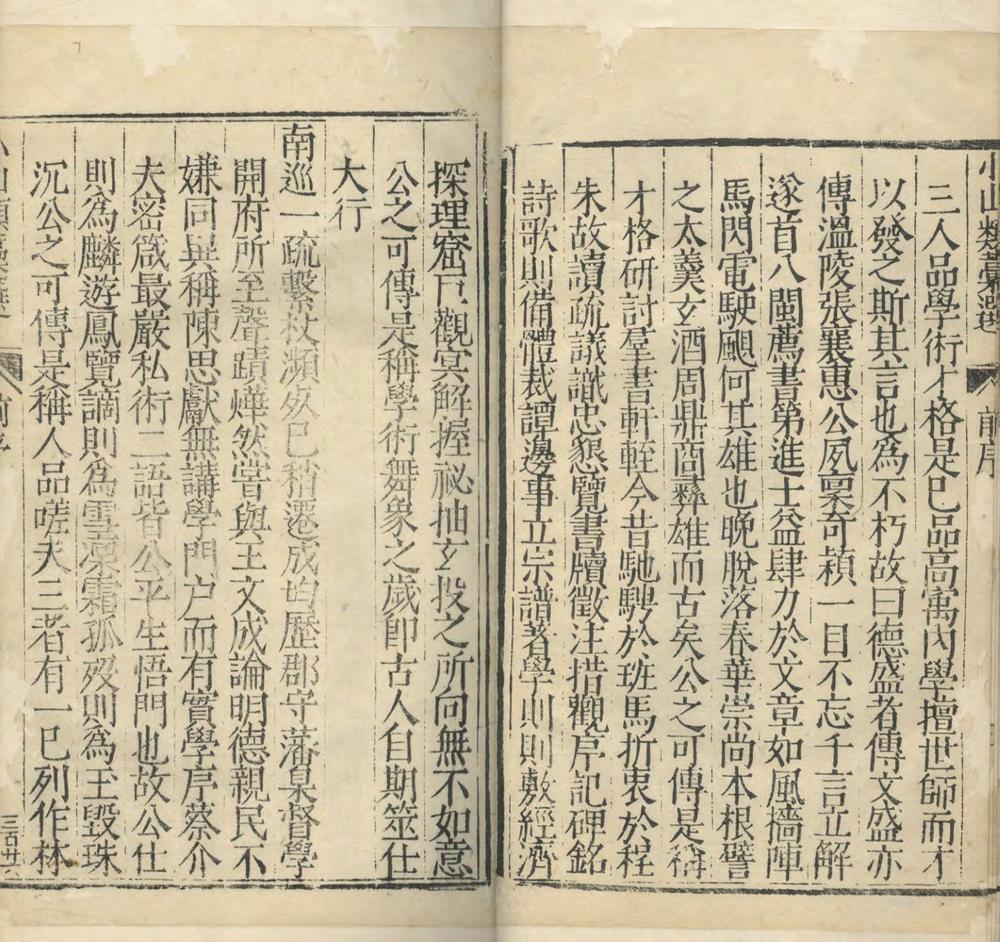 小山類藁選 前序
三人品學術才格是已品高寓內學擅世師而才
以發之斯其言也為不朽故曰德盛者傳文盛亦
傳溫陵張襄惠公夙稟奇穎一目不忘千言立解
遂首八閩薦書第進士益肆力於文章如風檣陣
馬閃電駛颿何其雄也晚脫落春華崇尚本根譬
之太羹玄酒周鼎商彞雄而古矣公之可傳是稱
才格研討羣書軒輊今昔馳騁於班馬折衷於程
朱故讀疏議識忠懇覽書牘徵注措觀序記碑銘
詩歌則備體裁譚邊事立宗譜著學則則敷經濟
探理窟曰觀冥解握祕抽玄投之所向無不如意
公之可傳是稱學術舞象之歲即古人自期筮仕
大行
南巡一疏繫杖瀕死已稍遷成均歷郡守藩臬督學
開府所至聲蹟燁然嘗與王文成論明德親民不
嫌同異稱陳思獻無講學門戶而有實學序蔡介
夫密箴最嚴私術二語皆公平生悟門也故公仕
則為麟遊鳳覽謫則為雪凜霜孤歿則為玉毀珠
沉公之可傳是稱人品嗟夫三者有一已列作林
三百廿六